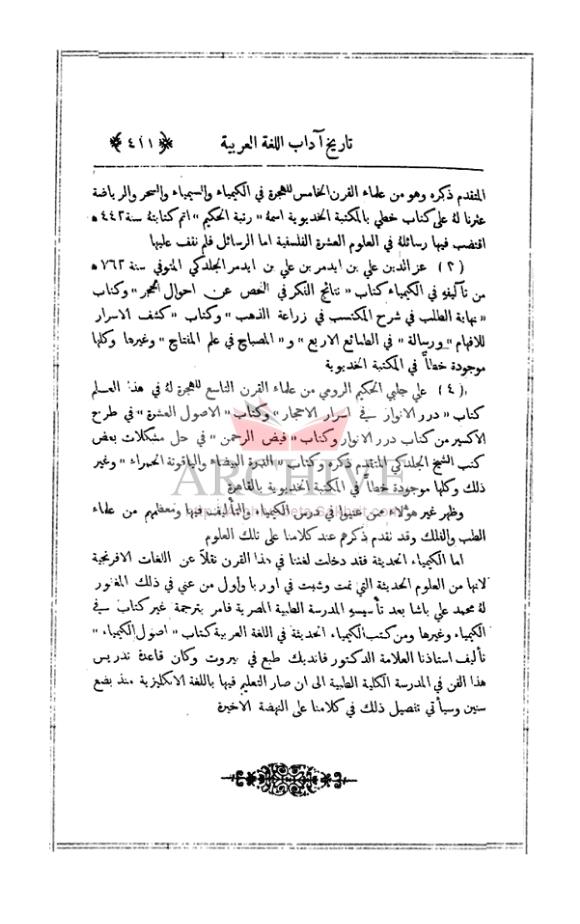 تاريخ آداب اللغة العربية ﴿٤١١﴾
المتقدم ذكره وهو من علماء القرن الخامس للهجرة في الكيمياء والسيمياء والسحر والرياضة
عثرنا له على كتاب خطي بالمكتبة الخديوية اسمه « رتبة الحكيم » اتم كتابته سنة ٤٤٢ ه
اقتضب فيها رسائله في العلوم العشرة الفلسفية اما الرسائل فلم نقف عليها
(٣) عز الدين علي بن ايدمر بن علي بن ايدمر الجلدكي المتوفي سنة ٧٦٢ ه
من تآليفه في الكيمياء كتاب « نتائج الفكر في الفحص عن احوال الحجر » وكتاب
« نهاية الطلب في شرح المكتسب في زراعة الذهب » وكتاب « كشف الاسرار
للافهام » ورسالة « في الطبائع الاربع » و « المصباح في علم المفتاح » وغيرها وكلها
موجودة خطاً في المكتبة الخديوية
(٤) علي جلبي الحكيم الرومي من علماء القرن التاسع للهجرة له في هذا العلم
كتاب « درر الانوار في اسرار الاحجار » وكتاب « الاصول العشرة » في طرح
الاكسير من كتاب درر الانوار وكتاب « فيض الرحمن » في حل مشكلات بعض
كتب الشيخ الجلدكي المتقدم ذكره وكتاب « الدرة البيضاء والياقوتة الحمراء » وغير
ذلك وكلها موجودة خطاً في المكتبة الخديوية بالقاهرة
ARCHIVE
وظهر غير هؤلاء ممن عنيوا في درس الكيمياء والتأليف فيها ومعظمهم من علماء
الطب والفلك وقد تقدم ذكرهم عند كلامنا على تلك العلوم
اما الكيمياء الحديثة فقد دخلت لغتنا في هذا القرن نقلاً عن اللغات الافرنجية
لانها من العلوم الحديثة التي نمت وشبت في اوربا واول من عني في ذلك المغفور
له محمد علي باشا بعد تأسيسه المدرسة الطبية المصرية فامر بترجمة غير كتاب في
الكيمياء وغيرها ومن كتب الكيمياء الحديثة في اللغة العربية كتاب « اصول الكيمياء »
تأليف استاذنا العلامة الدكتور فانديك طبع في بيروت وكان قاعدة تدريس
هذا الفن في المدرسة الكلية الطبية الى ان صار التعليم فيها باللغة الانكليزية منذ بضع
سنين وسيأتي تفصيل ذلك في كلامنا على النهضة الاخيرة